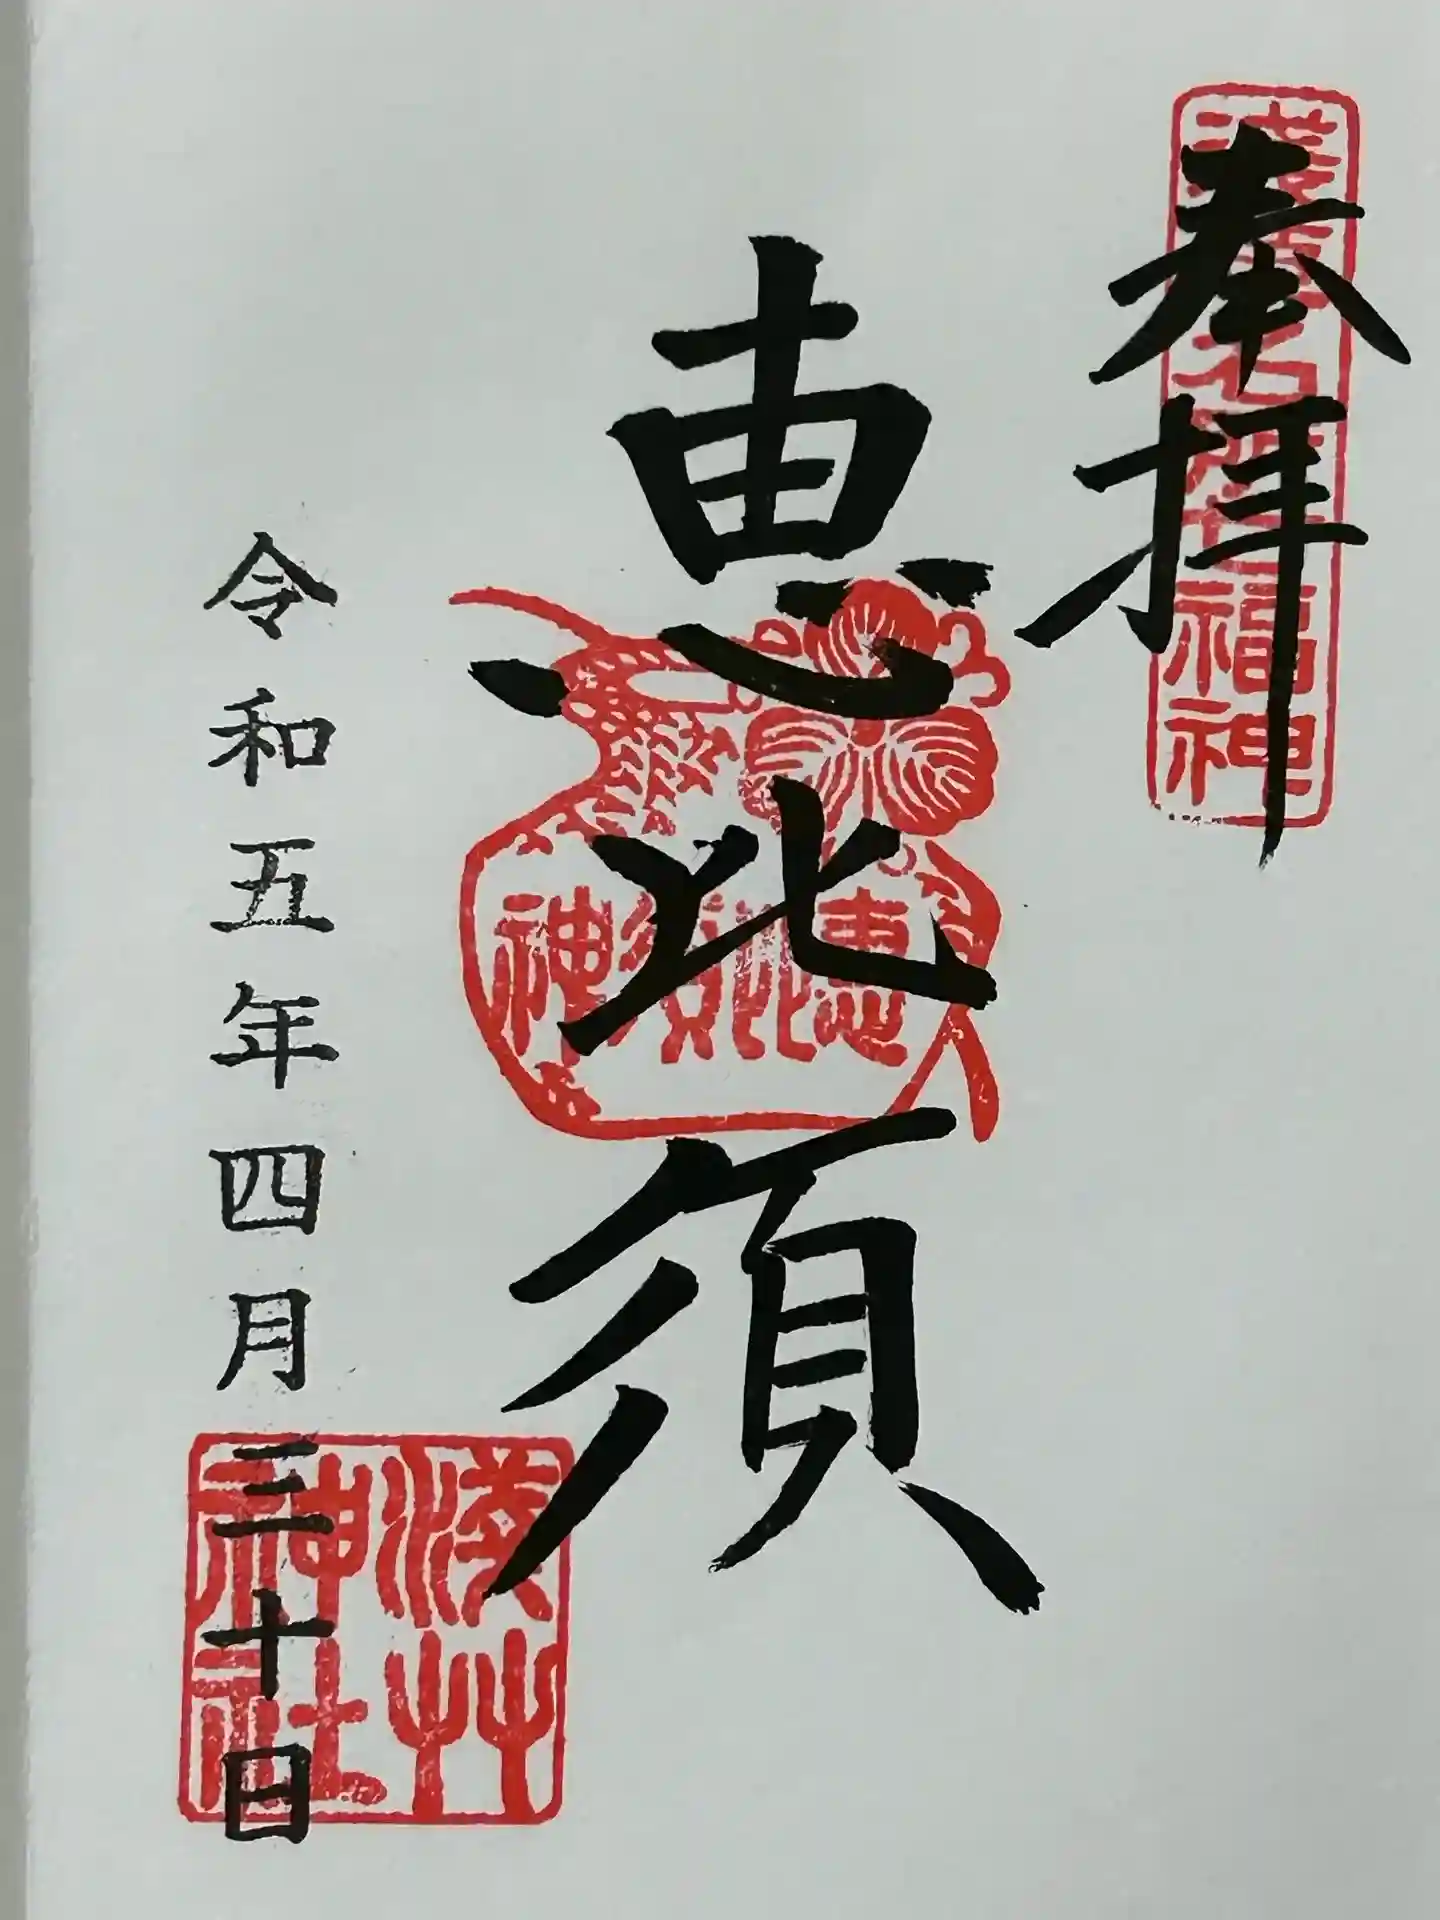 奉拝
浅草名所七福神
恵比須
恵比須神
令和五年四月三十日
浅草神社